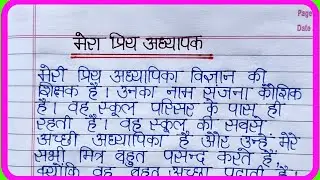 Page
Date
मेरा प्रिय अध्यापक
मेरी प्रिय अध्यापिका विज्ञान की
शिक्षक है। उनका नाम सृजना कौशिक
है। वह स्कूल परिसर के पास ही
रहती हैं। वह स्कूल की सबसे
अच्छी अध्यापिका है और उन्हें मेरे
सभी मित्र बहुत पसन्द करते हैं,
क्योंकि वह बहुत अच्छा पढ़ाती हैं।